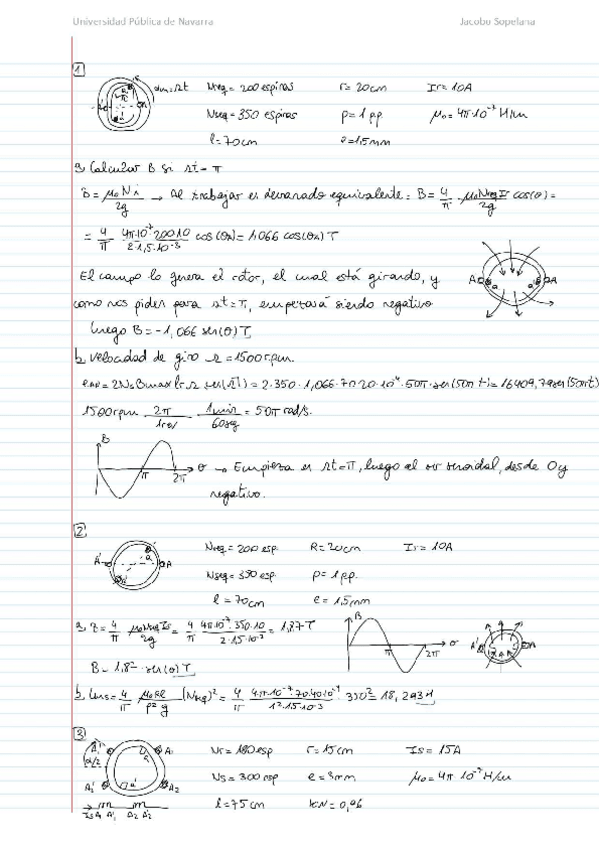 Universidad Pública de Navarra Jacobo Sopelana
1
Nreq = 200 espiras r = 20cm Ir = 10A
Nseq = 350 espiras p = 1 pp μ₀ = 4π·10⁻⁷ H/m
l = 70cm e = 1,5mm
a. Calcular B si Ωt = π
B = μ₀Ni / 2g → Al trabajar en devanado equivalente: B = 4/π · μ₀NreqIr / 2g cos(θ) =
= 4/π · 4π·10⁻⁷·200·10 / 2·1,5·10⁻³ cos(θr) = 1,066 cos(θr) T
El campo lo genera el rotor, el cual está girando, y
como nos piden para Ωt = π, empezará siendo negativo
luego B = -1,066 sen(θ) T
b. Velocidad de giro Ω = 1500 rpm.
= 2·350·1,066·70·20·10⁻⁴·50π·sen(50πt) = 16409,79 sen(50πt)
1500 rpm 2π/1rev 1min/60seg = 50π rad/s.
B θ π 2π → Empieza en Ωt = π, luego al ser senoidal, desde 0 y
negativo.
2
Nreq = 200 esp. R = 20cm Ir = 10A
Nseq = 350 esp. p = 1 pp.
l = 70cm e = 1,5mm
a. B = 4/π μ₀NseqIs / 2g = 4/π · 4π·10⁻⁷·350·10 / 2·1,5·10⁻³ = 1,87 T
B θ π 2π
b. Lms = 4/π μ₀Rl / p²g (Nseq)² = 4/π · 4·π·10⁻⁷·70·20·10⁻⁴ / 1²·1,5·10⁻³ · 350² = 18,293 H
3
Nr = 180 esp r = 15cm Is = 15A
Ns = 300 esp e = 3mm μ₀ = 4π·10⁻⁷ H/m
l = 75cm KN = 0,96